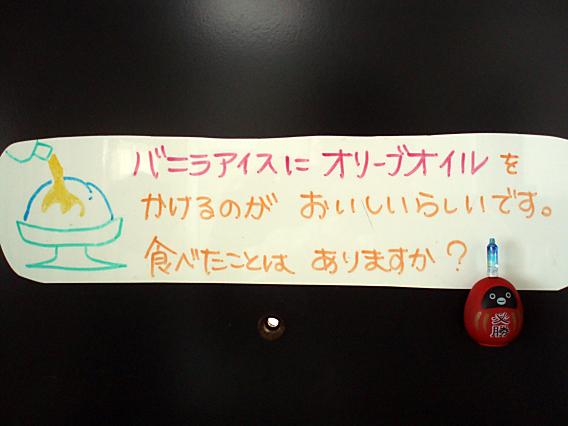 バニラアイスに オリーブオイルを
かけるのが おいしいらしいです。
食べたことは ありますか?
必勝